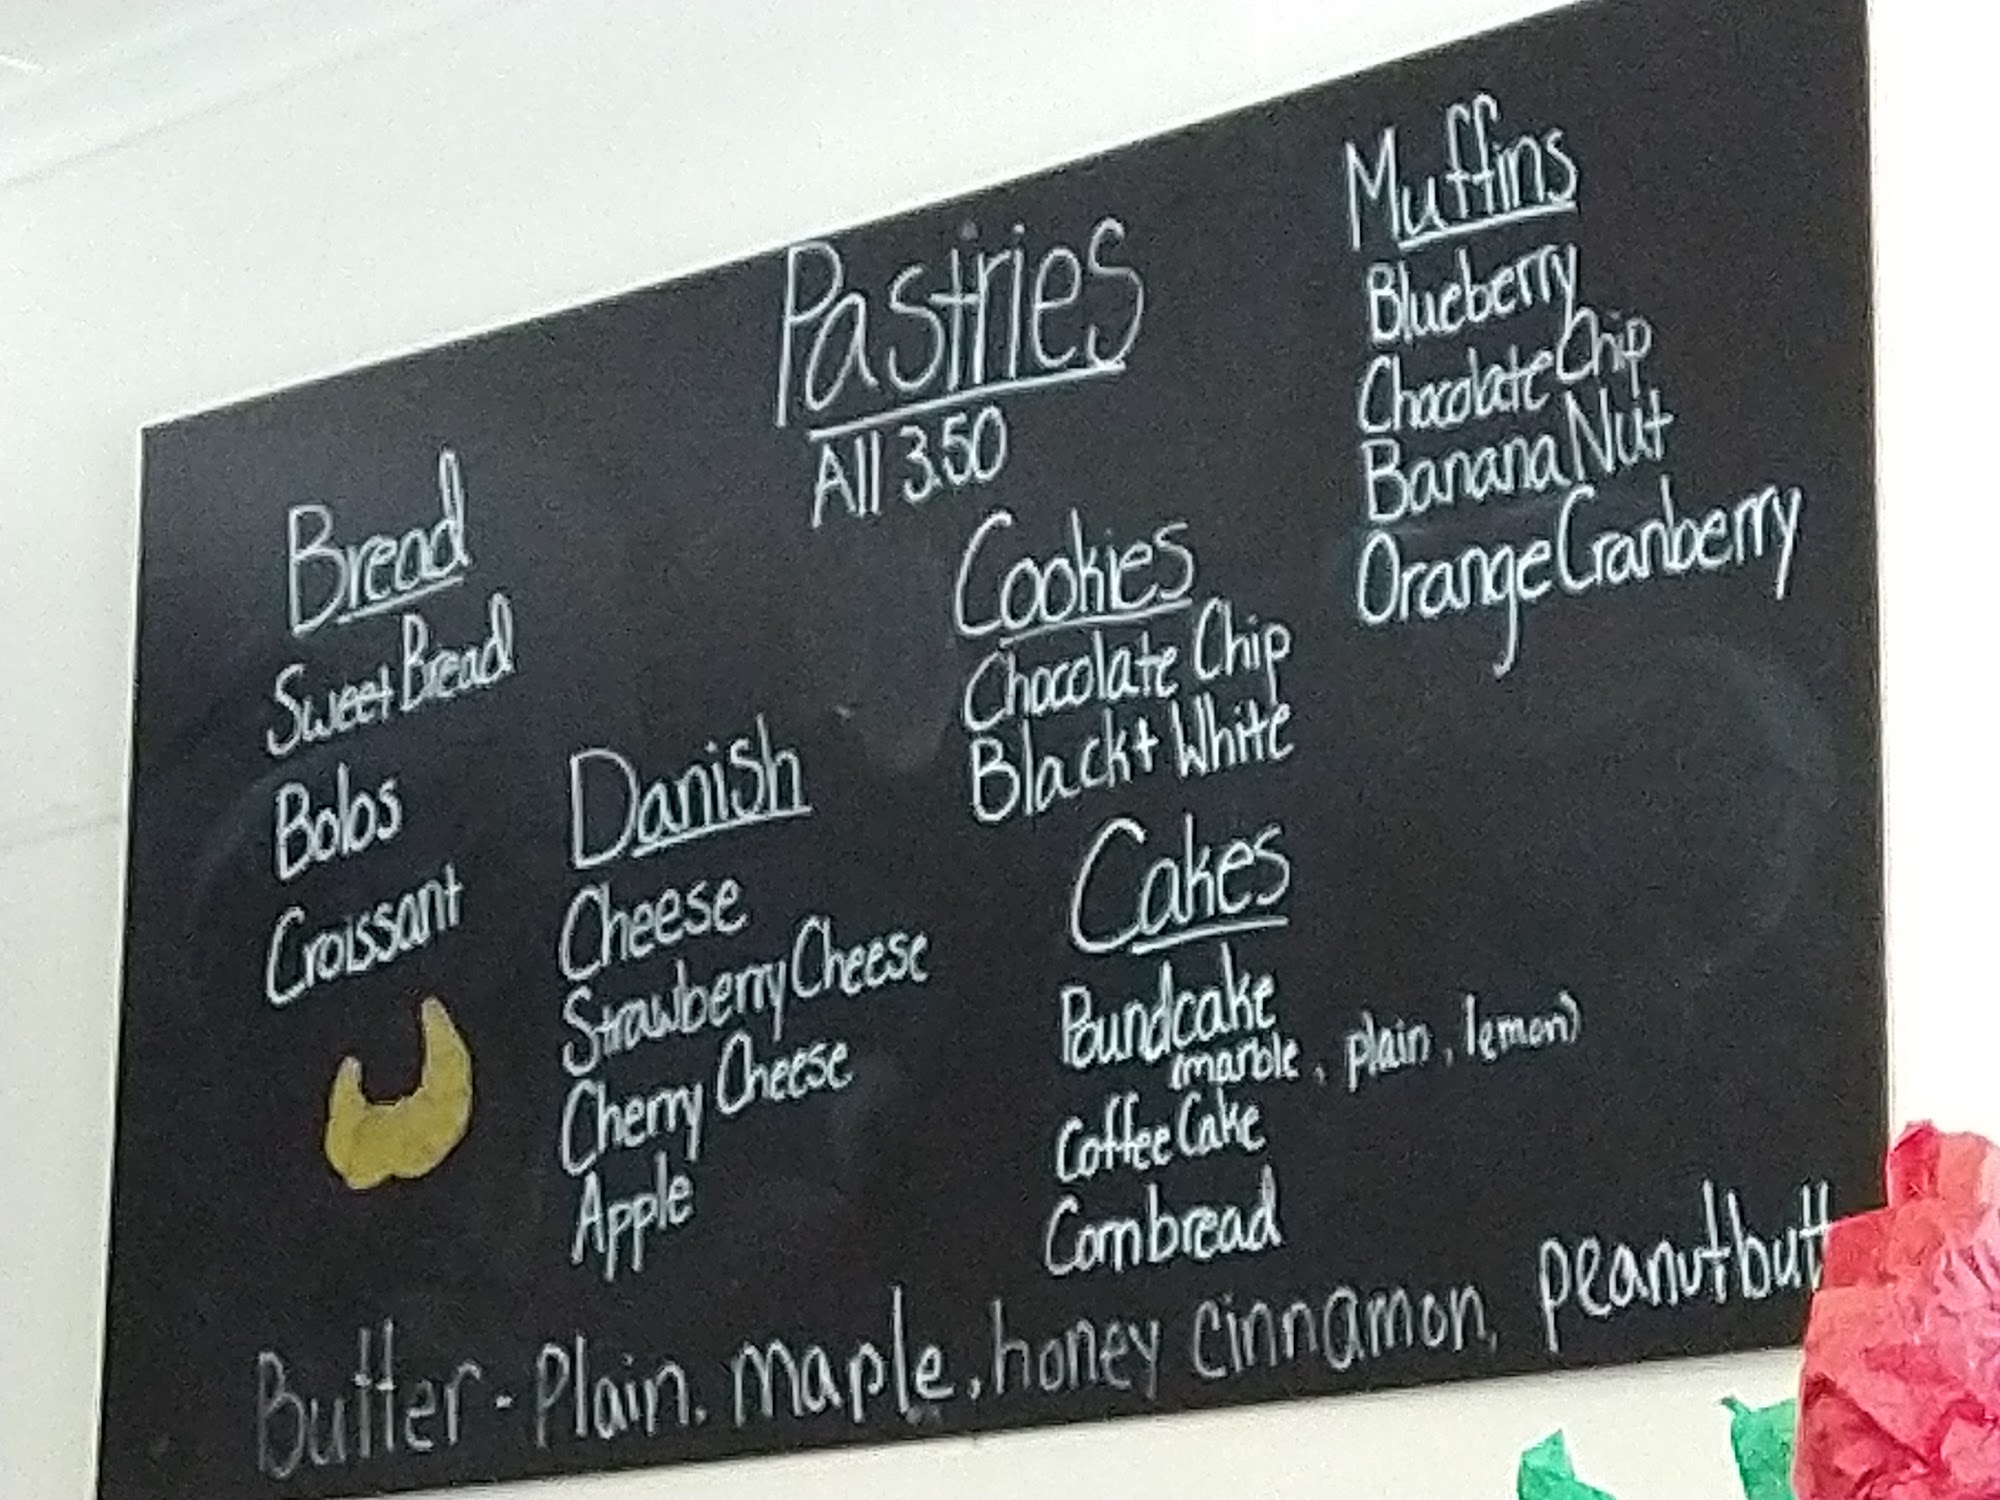 Pastries
All 3.50
Bread
Sweet Bread
Bolos
Croissant
Danish
Cheese
Strawberry Cheese
Cherry Cheese
Apple
Cookies
Chocolate Chip
Black + White
Cakes
Poundcake
(marble, plain, lemon)
Coffee Cake
Cornbread
Muffins
Blueberry
Chocolate Chip
Banana Nut
Orange Cranberry
Butter - Plain, maple, honey cinnamon, peanutbutt